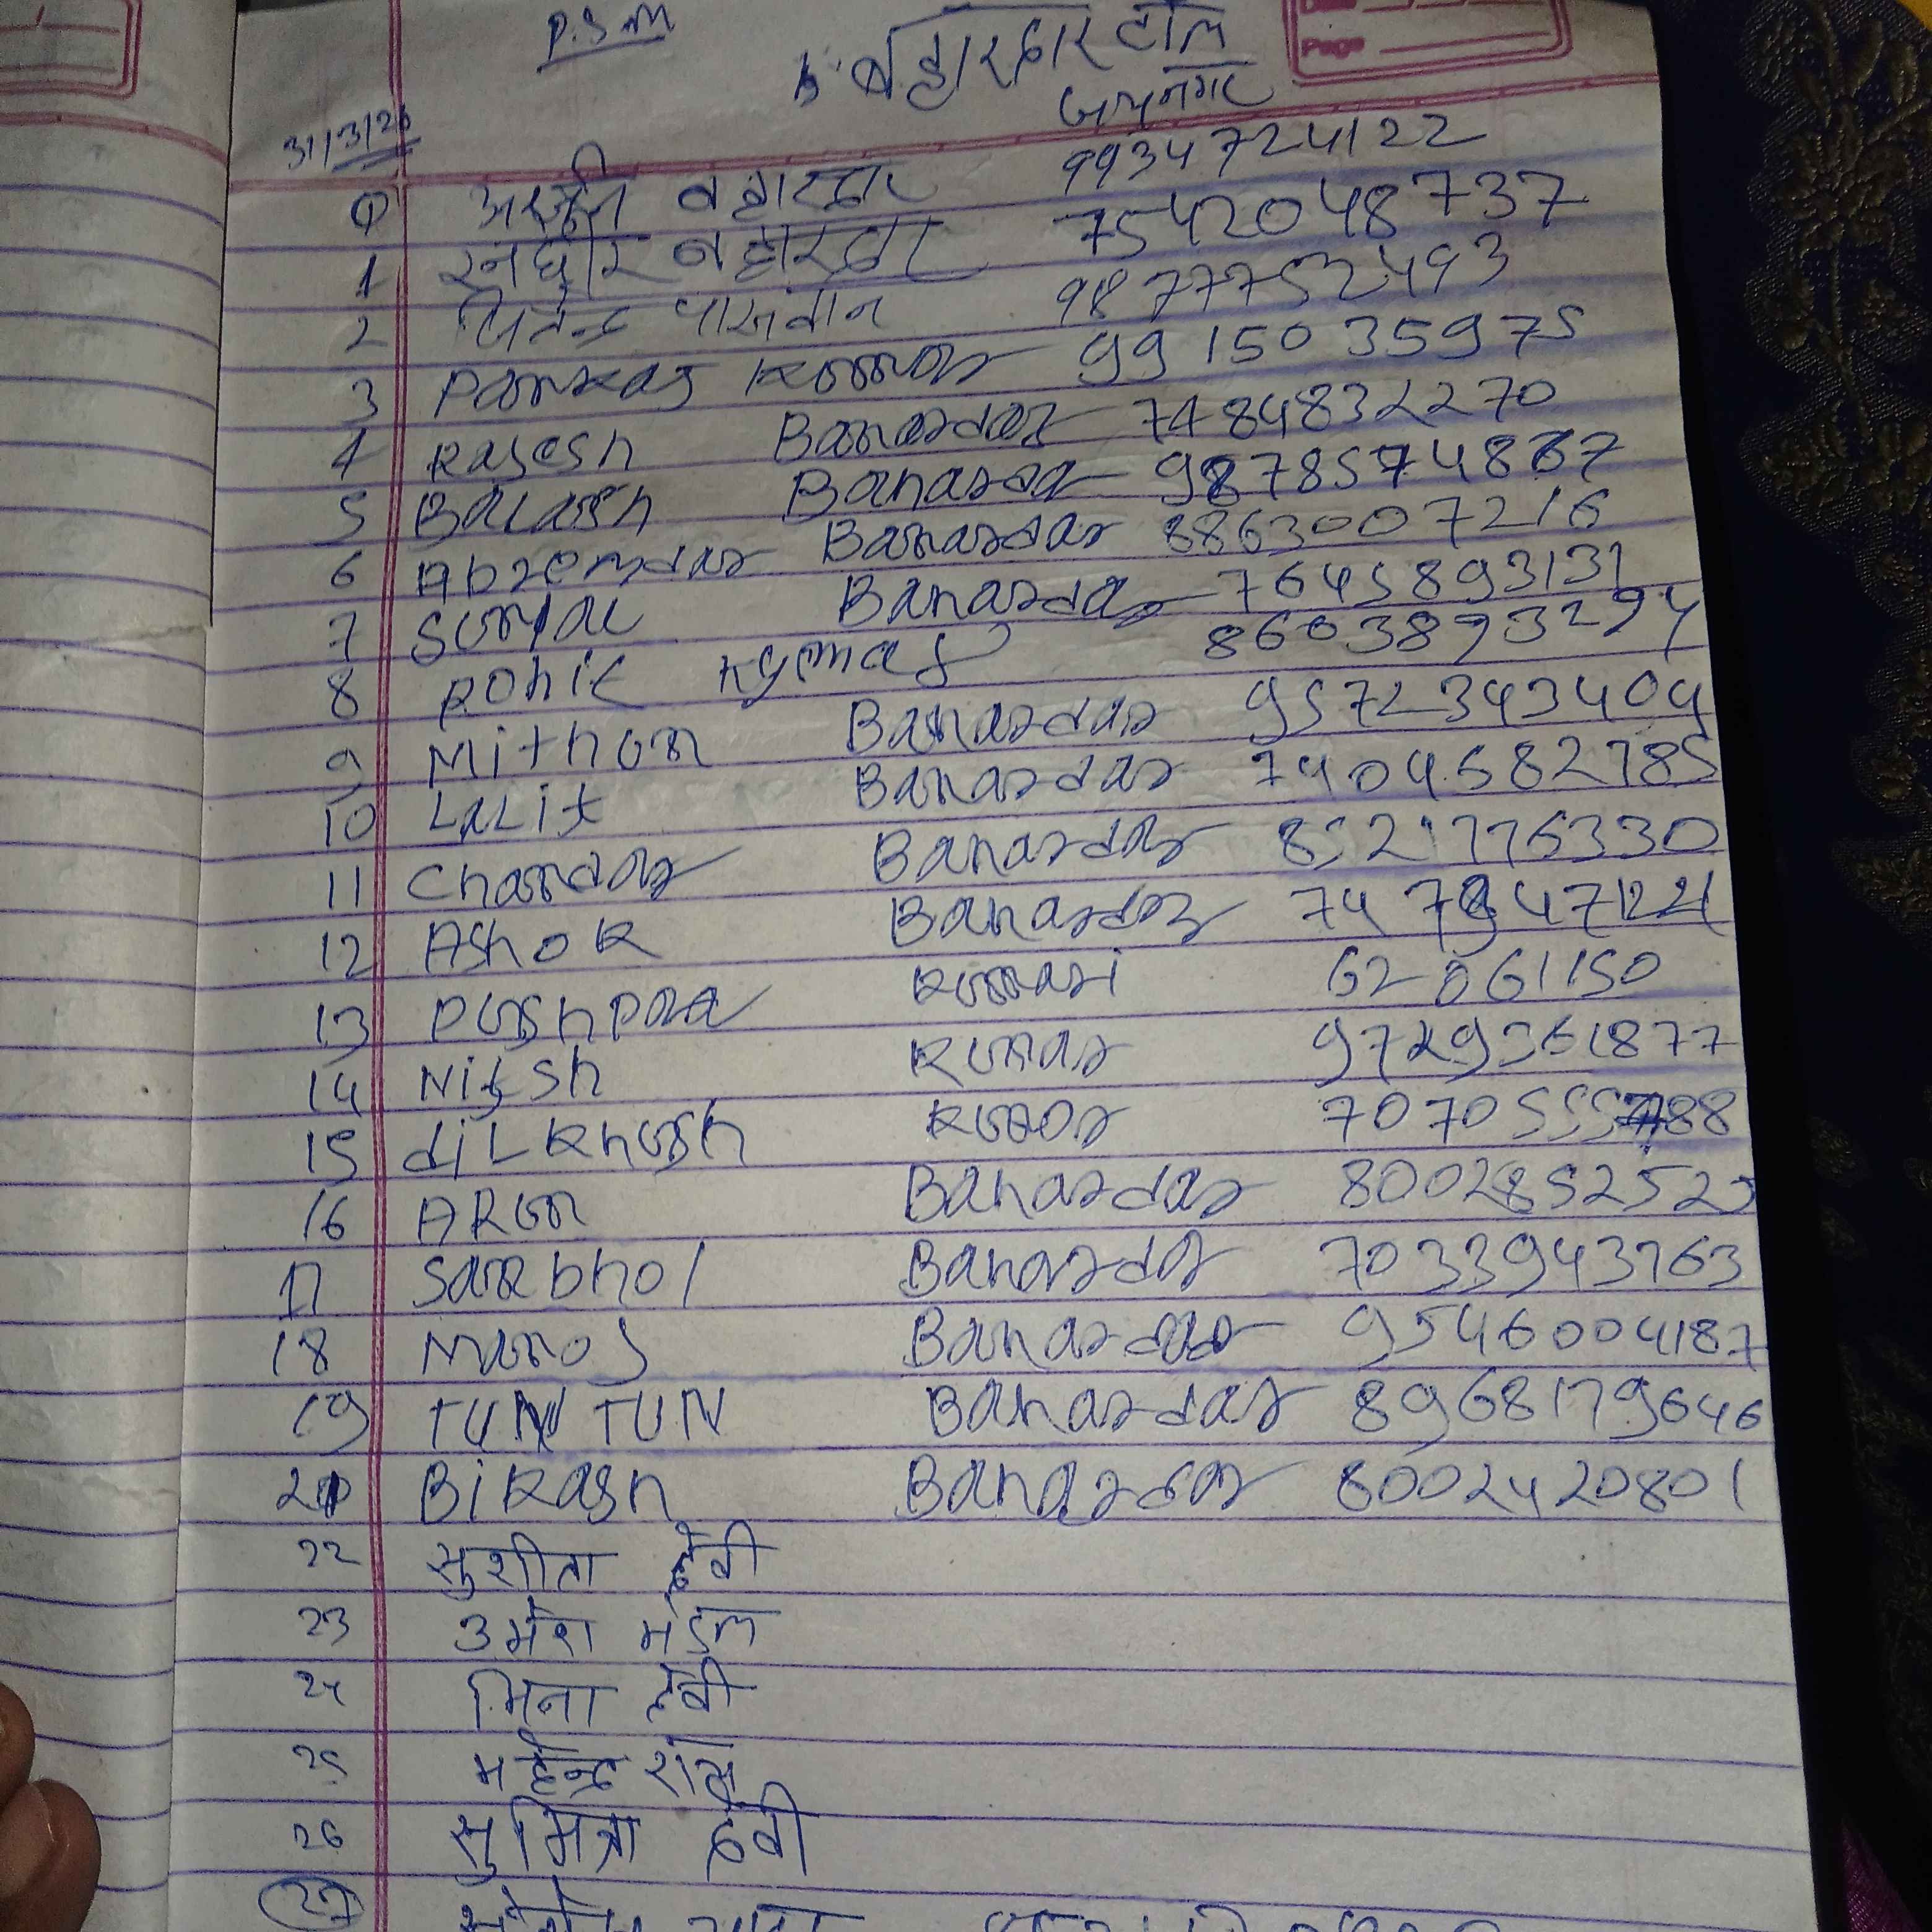 P.S.M
बहारदार टोल
जयनगर
31/3/26
Page
① अर्जुन बहारदार 9934724122
1 रनधीर बहारदार 7542048737
2 जितेन्द्र पासवान 9877752493
3 Pankaj Kumar 9915035975
4 Rajesh Banardar 7484832270
5 Balash Banarda
6 Banardar 8863007216
7 Banardar 7645893131
8 Rohit Kyemar 8603893294
9 Mithun Banardar 9572343404
10 LaLit Banardar 7404682785
11 Chandar Banardar
12 Ashok Banardar
13 Pushpaa Kumari
14 Nitsh Kumar 9729361877
15 diLKhush Kumar
16 ARUn Banardar 8002852525
17 Banardar 7033943763
18 Manoj Banardar 9546004187
19 TUN TUN Banardar 8968179646
Bikash Banardar 8002420801
22 सुशीता देवी
23 उमेश मंडल
24 मिना देवी
25 महेन्द्र
26 सुमित्रा देवी
27